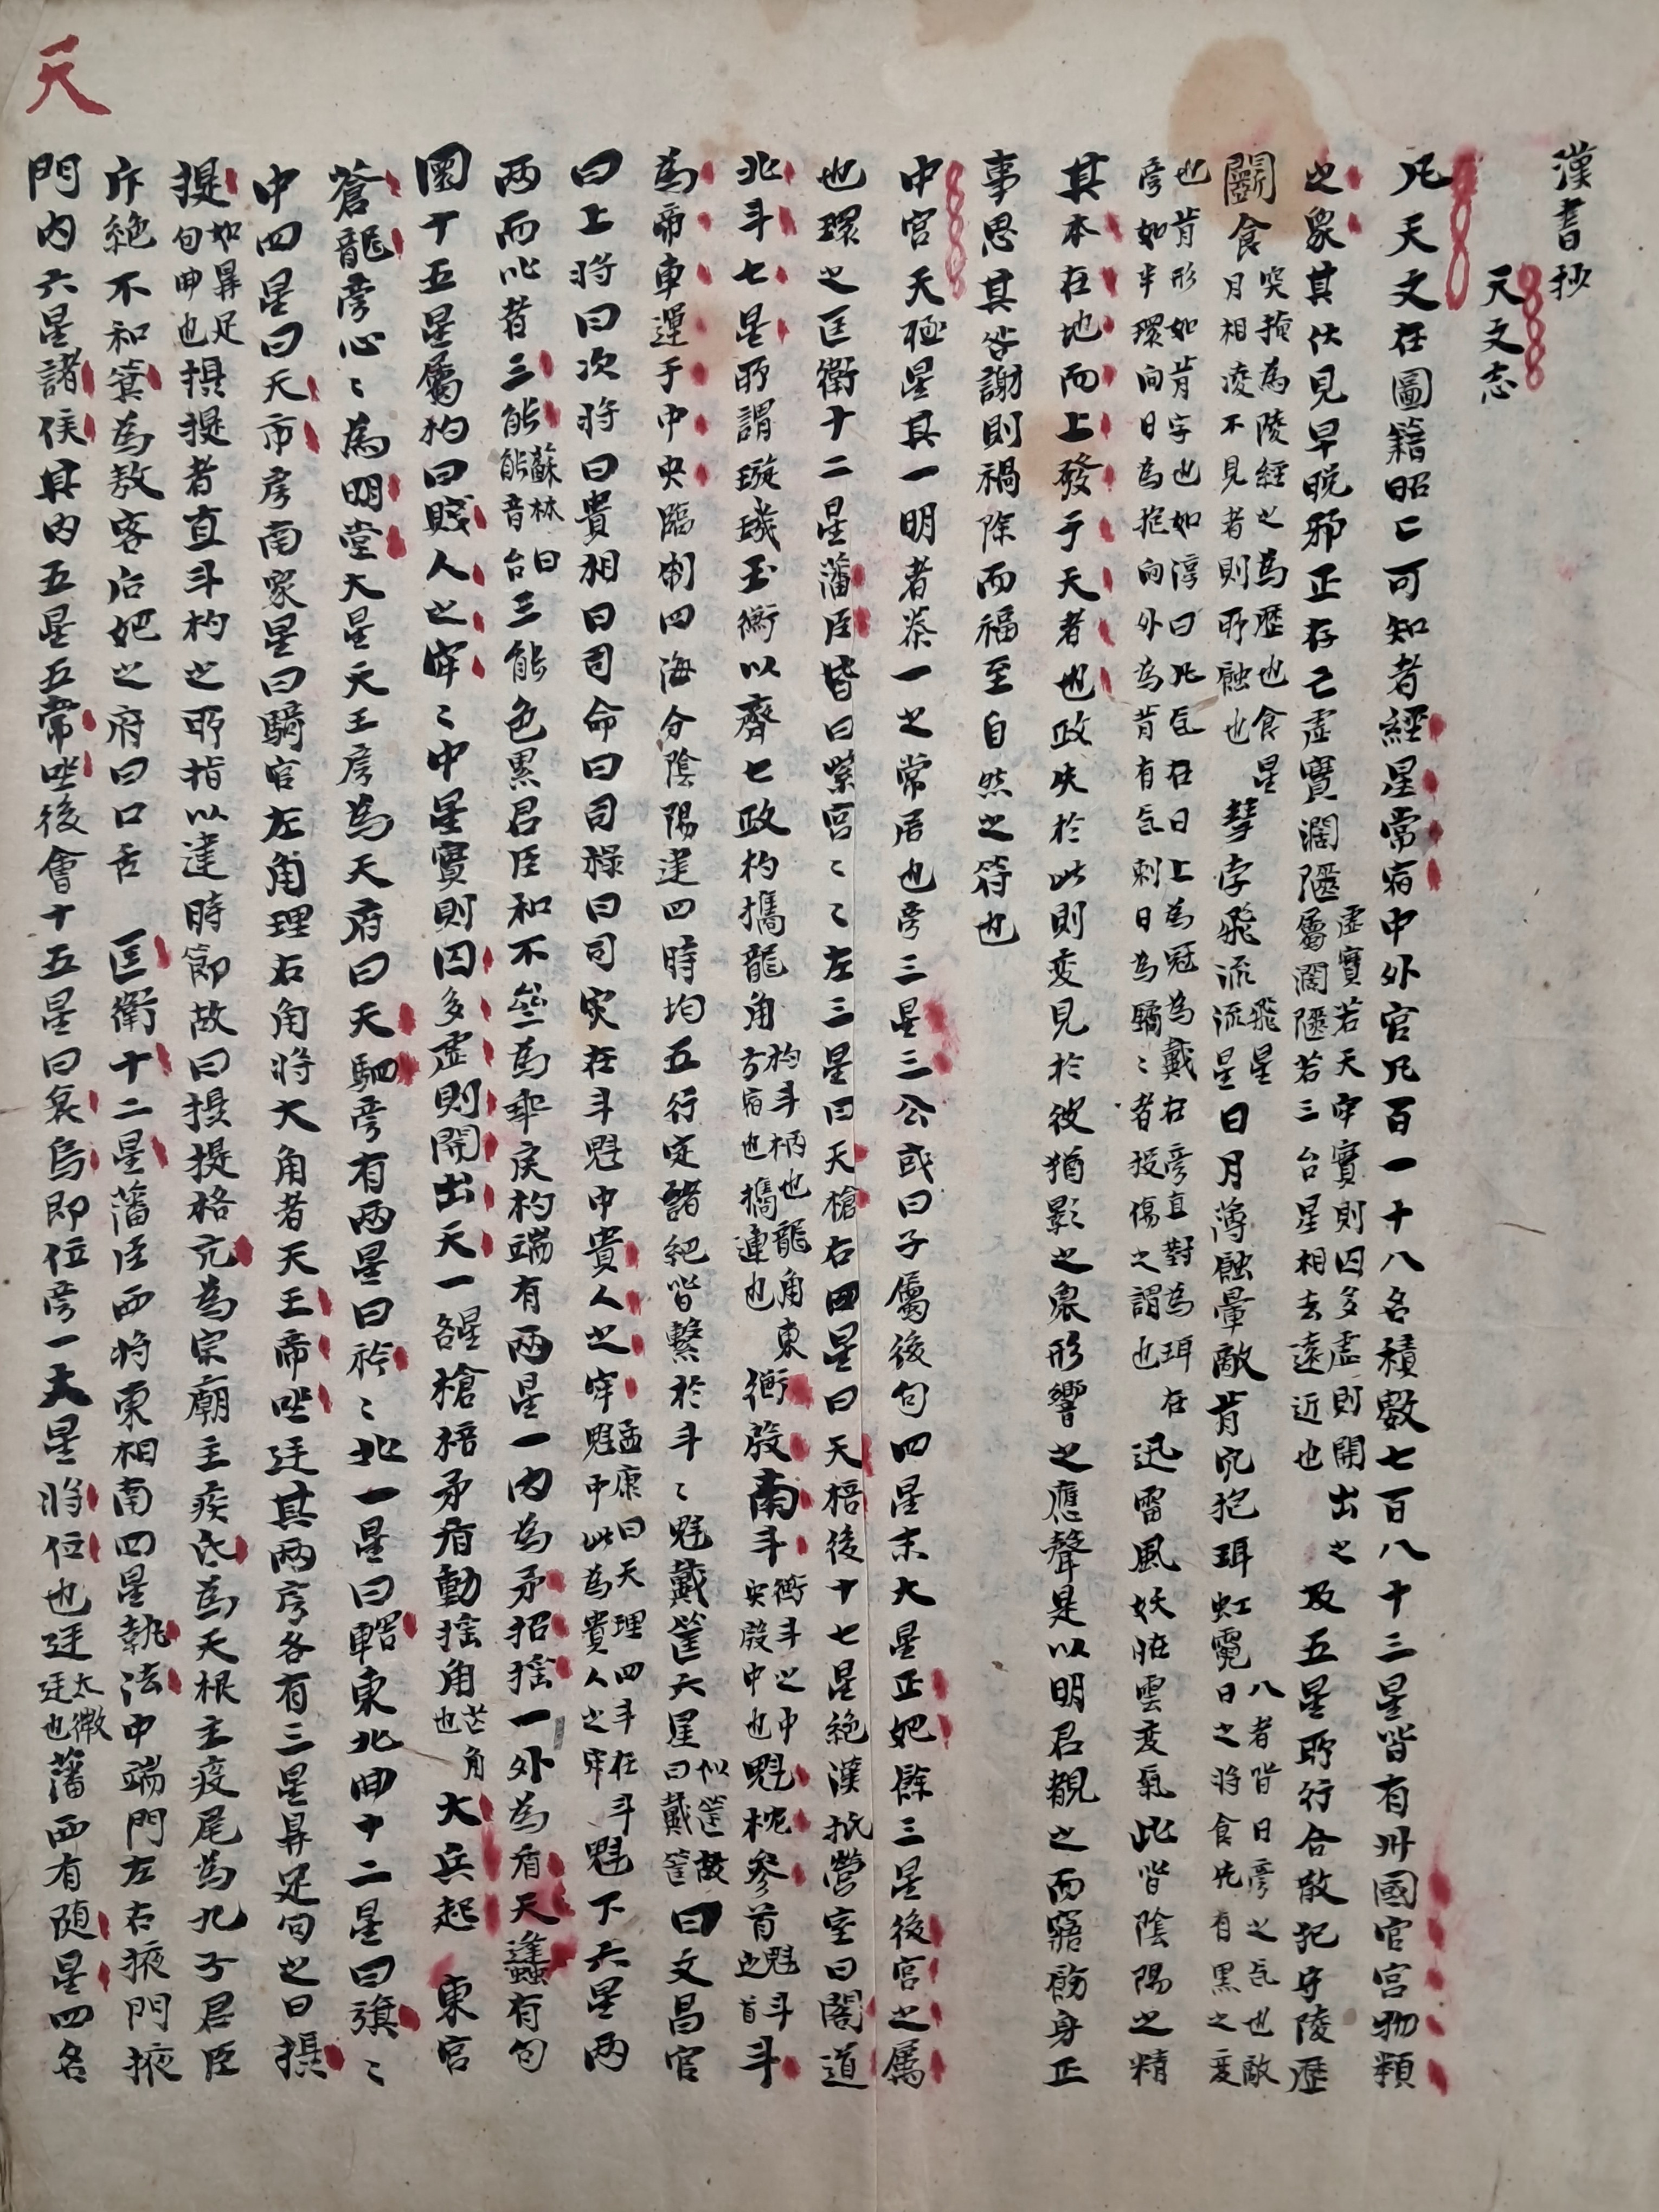 漢書抄
天文志
凡天文在圖籍昭〻可知者經星常宿中外官凡百一十八名積數七百八十三星皆有州國官宮物類
之象其伏見早晚邪正存亡虛實濶隘虛實若天牢實則囚多虛則開出之屬濶隘若三台星相去遠近也及五星所行合散犯守陵歷
鬭食突掩為陵經之為歷也食星月相凌不見者則所蝕也彗孛飛流飛星流星日月薄蝕暈敵背穴抱珥虹霓八者皆日旁之气也敵日之將食先有黑之変
也背形如背字也如淳曰凡气在日上為冠為戴在旁直對為珥在旁如半環向日為抱向外為背有气刺日為鐍〻者抉傷之謂也迅雷風妖怪雲变氣此皆陰陽之精
其本在地而上發于天者也政失於此則変見於彼猶影之象形響之應聲是以明君覩之而寤飭身正
事思其咎謝則禍除而福至自然之符也
中宮天極星其一明者泰一之常居也旁三星三公或曰子屬後句四星末大星正妃餘三星後宮之屬
也環之匡衛十二星藩臣皆曰紫宮〻〻左三星曰天槍右四星曰天棓後十七星絶漢抵營室曰閣道
北斗七星所謂璇璣玉衡以齊七政杓攜龍角杓斗柄也龍角東方宿也攜連也衡殷南斗衡斗之中央殷中也魁枕參首魁斗之首斗
為帝車運于中央臨制四海分陰陽建四時均五行定諸紀皆繫於斗〻魁戴筐六星似筐故曰戴筐曰文昌宮
曰上將曰次將曰貴相曰司命曰司祿曰司灾在斗魁中貴人之牢孟康曰天理四斗在斗魁中此為貴人之牢魁下六星兩
兩而比者三能蘇林曰能音台三能色黑君臣和不叁為乖戾杓端有兩星一內為矛招搖一外為盾天蠭有句
圜十五星屬杓曰賤人之牢〻中星實則囚多虛則開出天一星槍棓矛盾動搖角芒角也大兵起 東宮
蒼龍房心〻為明堂大星天王房為天府曰天駟旁有兩星曰衿〻北一星曰舝東北曲十二星曰旗〻
中四星曰天市房南眾星曰騎官左角理右角將大角者天王帝坐廷其兩旁各有三星鼎足句之曰攝
提如鼎足句曲也攝提者直斗杓之所指以建時節故曰攝提格亢為宗廟主疾氐為天根主疫尾為九子君臣
斥絶不和箕為敖客后妃之府曰口舌 匡衛十二星藩臣西將東相南四星執法中端門左右掖門掖
門內六星諸侯其內五星五帝坐後會十五星曰哀烏即位旁一大星將位也廷太微廷也藩西有隨星四名
天